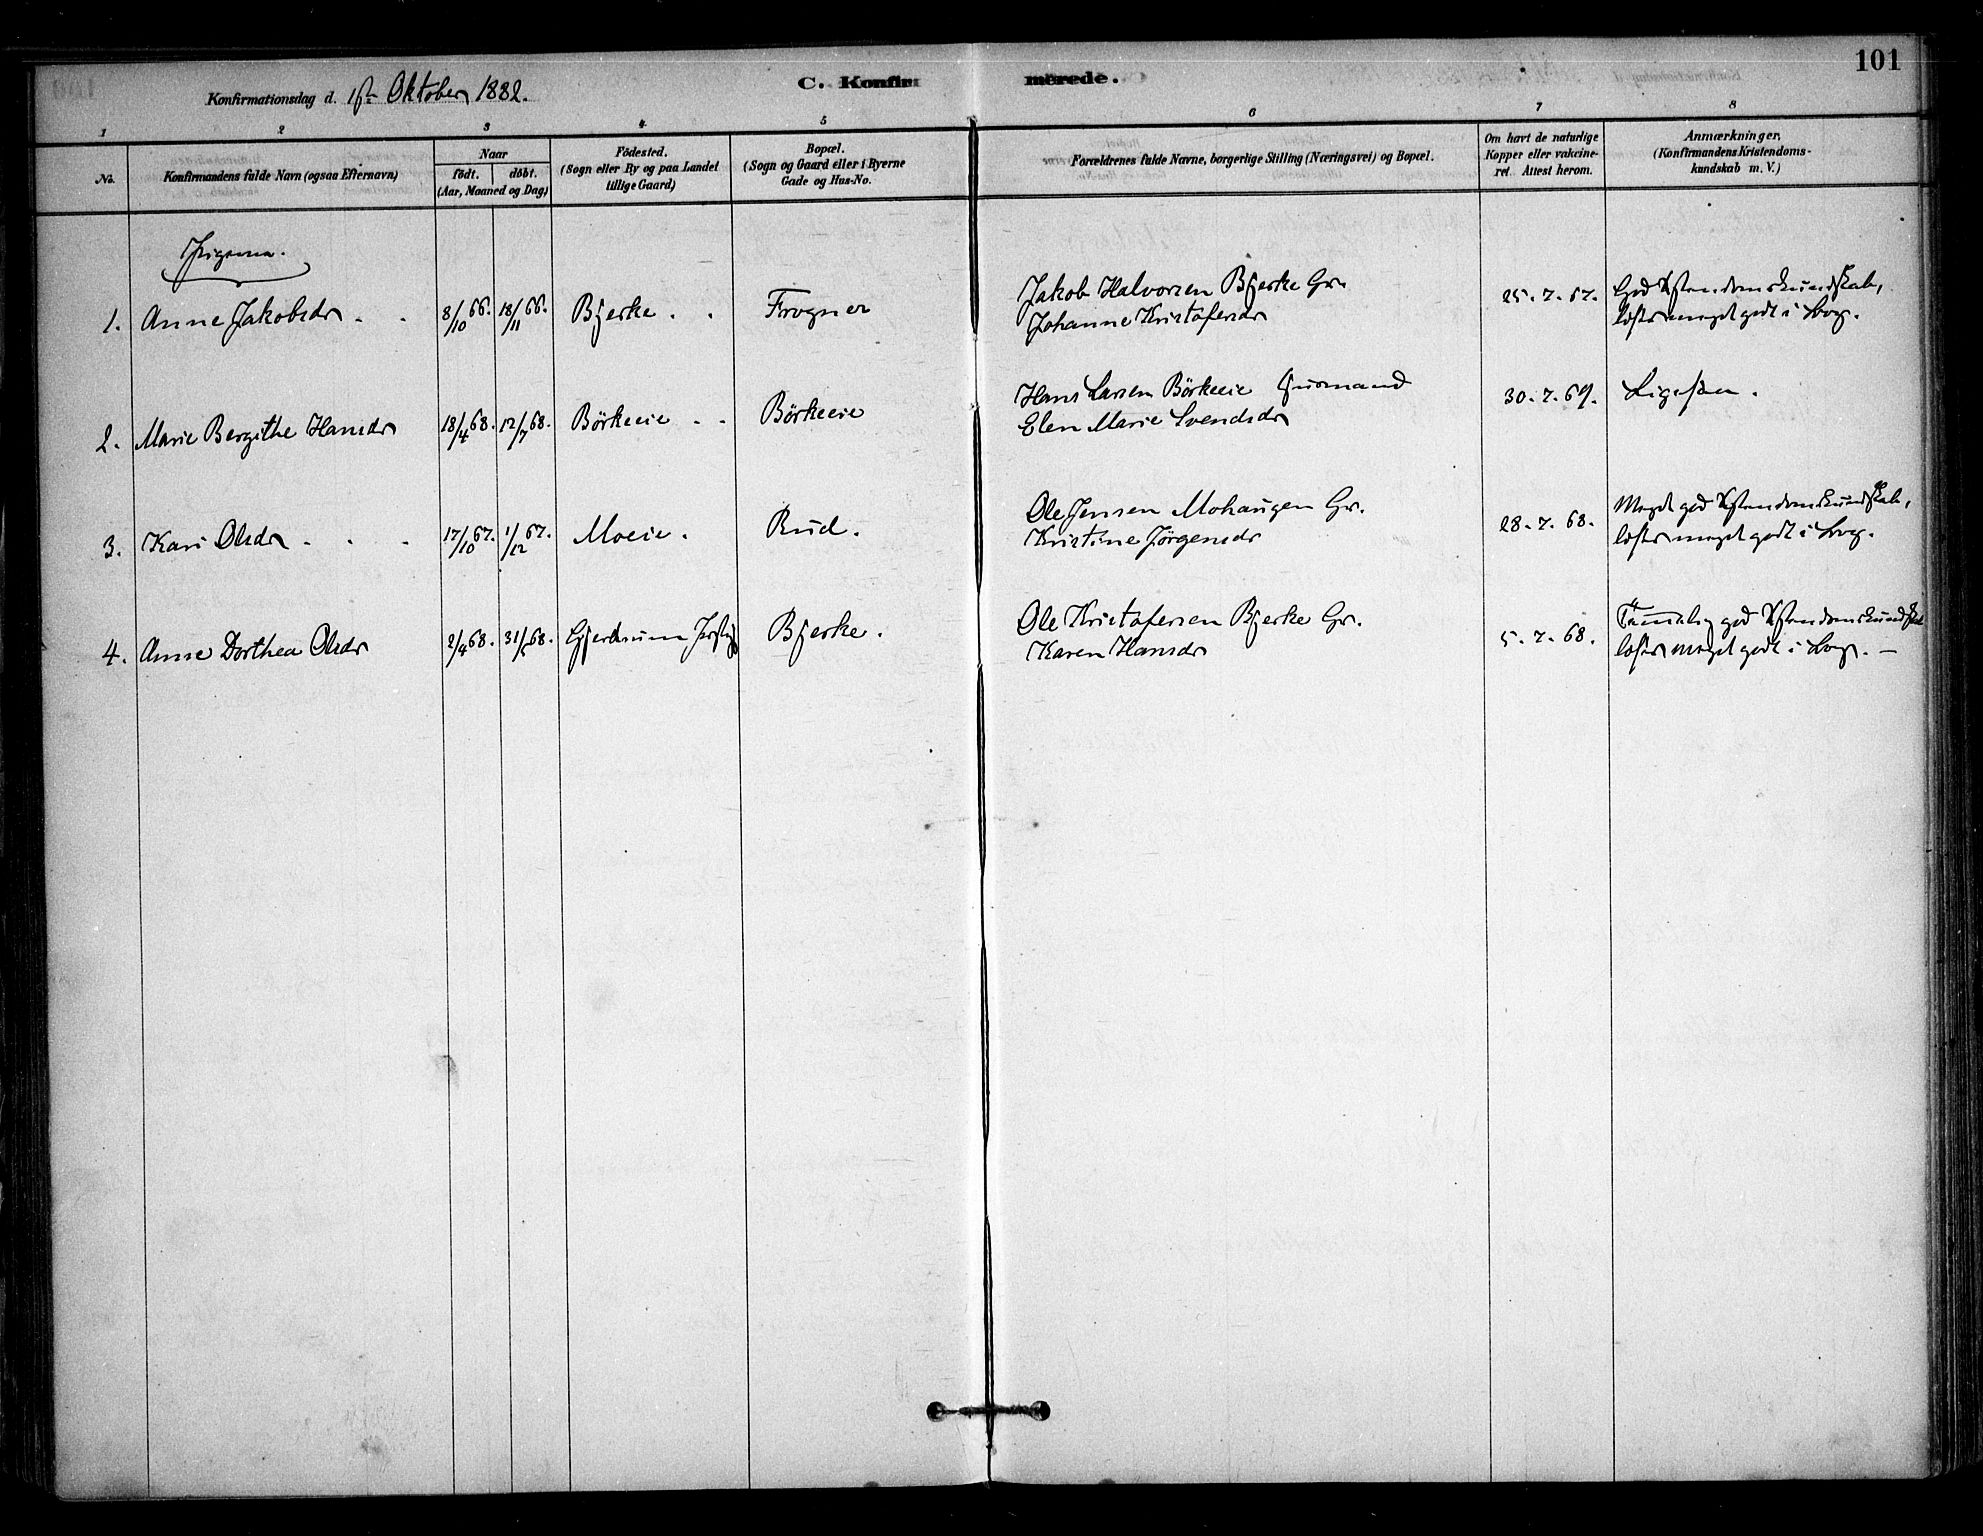 101
C. Konfirmerede.
Konfirmationsdag d. 1ste Oktober 1882.
1 2 3 4 5 6 7 8
No. Konfirmandens fulde Navn (ogsaa Efternavn) Naar födt. döbt. (Aar, Maaned og Dag) Födested. (Sogn eller By og paa Landet tillige Gaard) Bopæl. (Sogn og Gaard eller i Byerne Gade og Hus-No. Forældrenes fulde Navne, borgerlige Stilling (Næringsvei) og Bopæl. Om havt de naturlige Kopper eller vakcineret. Attest herom. Anmærkninger. (Konfirmandens Kristendomskundskab m. V.)
Pigerne.
1. Anne Jakobsdr. 8/10 66. 18/11 66. Bjerke Frogner Jakob Halvorsen Bjerke Gr. 25-7-67. God Xstendomskundskab,
Johanne Kristofersdr löftr meget godt i Bog.
2. Marie Bergithe Hansdr 18/4 68. 12/7 68. Börkeeie Börkeeie Hans Larsen Börkeeie Husmand 30-7-69. Ligesaa.
Elen Marie Svendsdr
3. Kari Olsdr 17/10 67. 1/12 67. Moeie. Rud. Ole Jensen Mohaugen Gr. 28-7-68. Meget god Xstendomskundskab,
Kristine Jörgensdr meget godt i Bog.
4. Anne Dorthea Olsdr 2/4 68. 31/5 68. Gjerdrum Bjerke. Ole Kristofersen Bjerke Gr. 5-7-68. Temmelig god Xstendomskundskab
Karen Hansdr meget godt i Bog. —